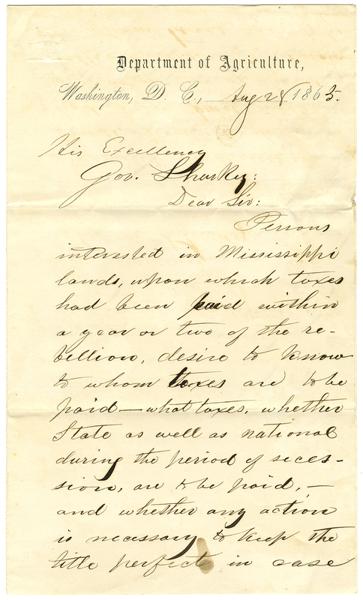 Department of Agriculture,
Washington, D. C., Aug 28 1865.
His Excellency
Gov. Sharkey:
Dear Sir:
Persons
interested in Mississippi
lands, upon which taxes
had been paid within
a year or two of the re-
bellion, desire to know
to whom taxes are to be
paid – what taxes, whether
State as well as national
during the period of seces-
sion, are to be paid, –
and whether any action
is necessary to keep the
title perfect in case